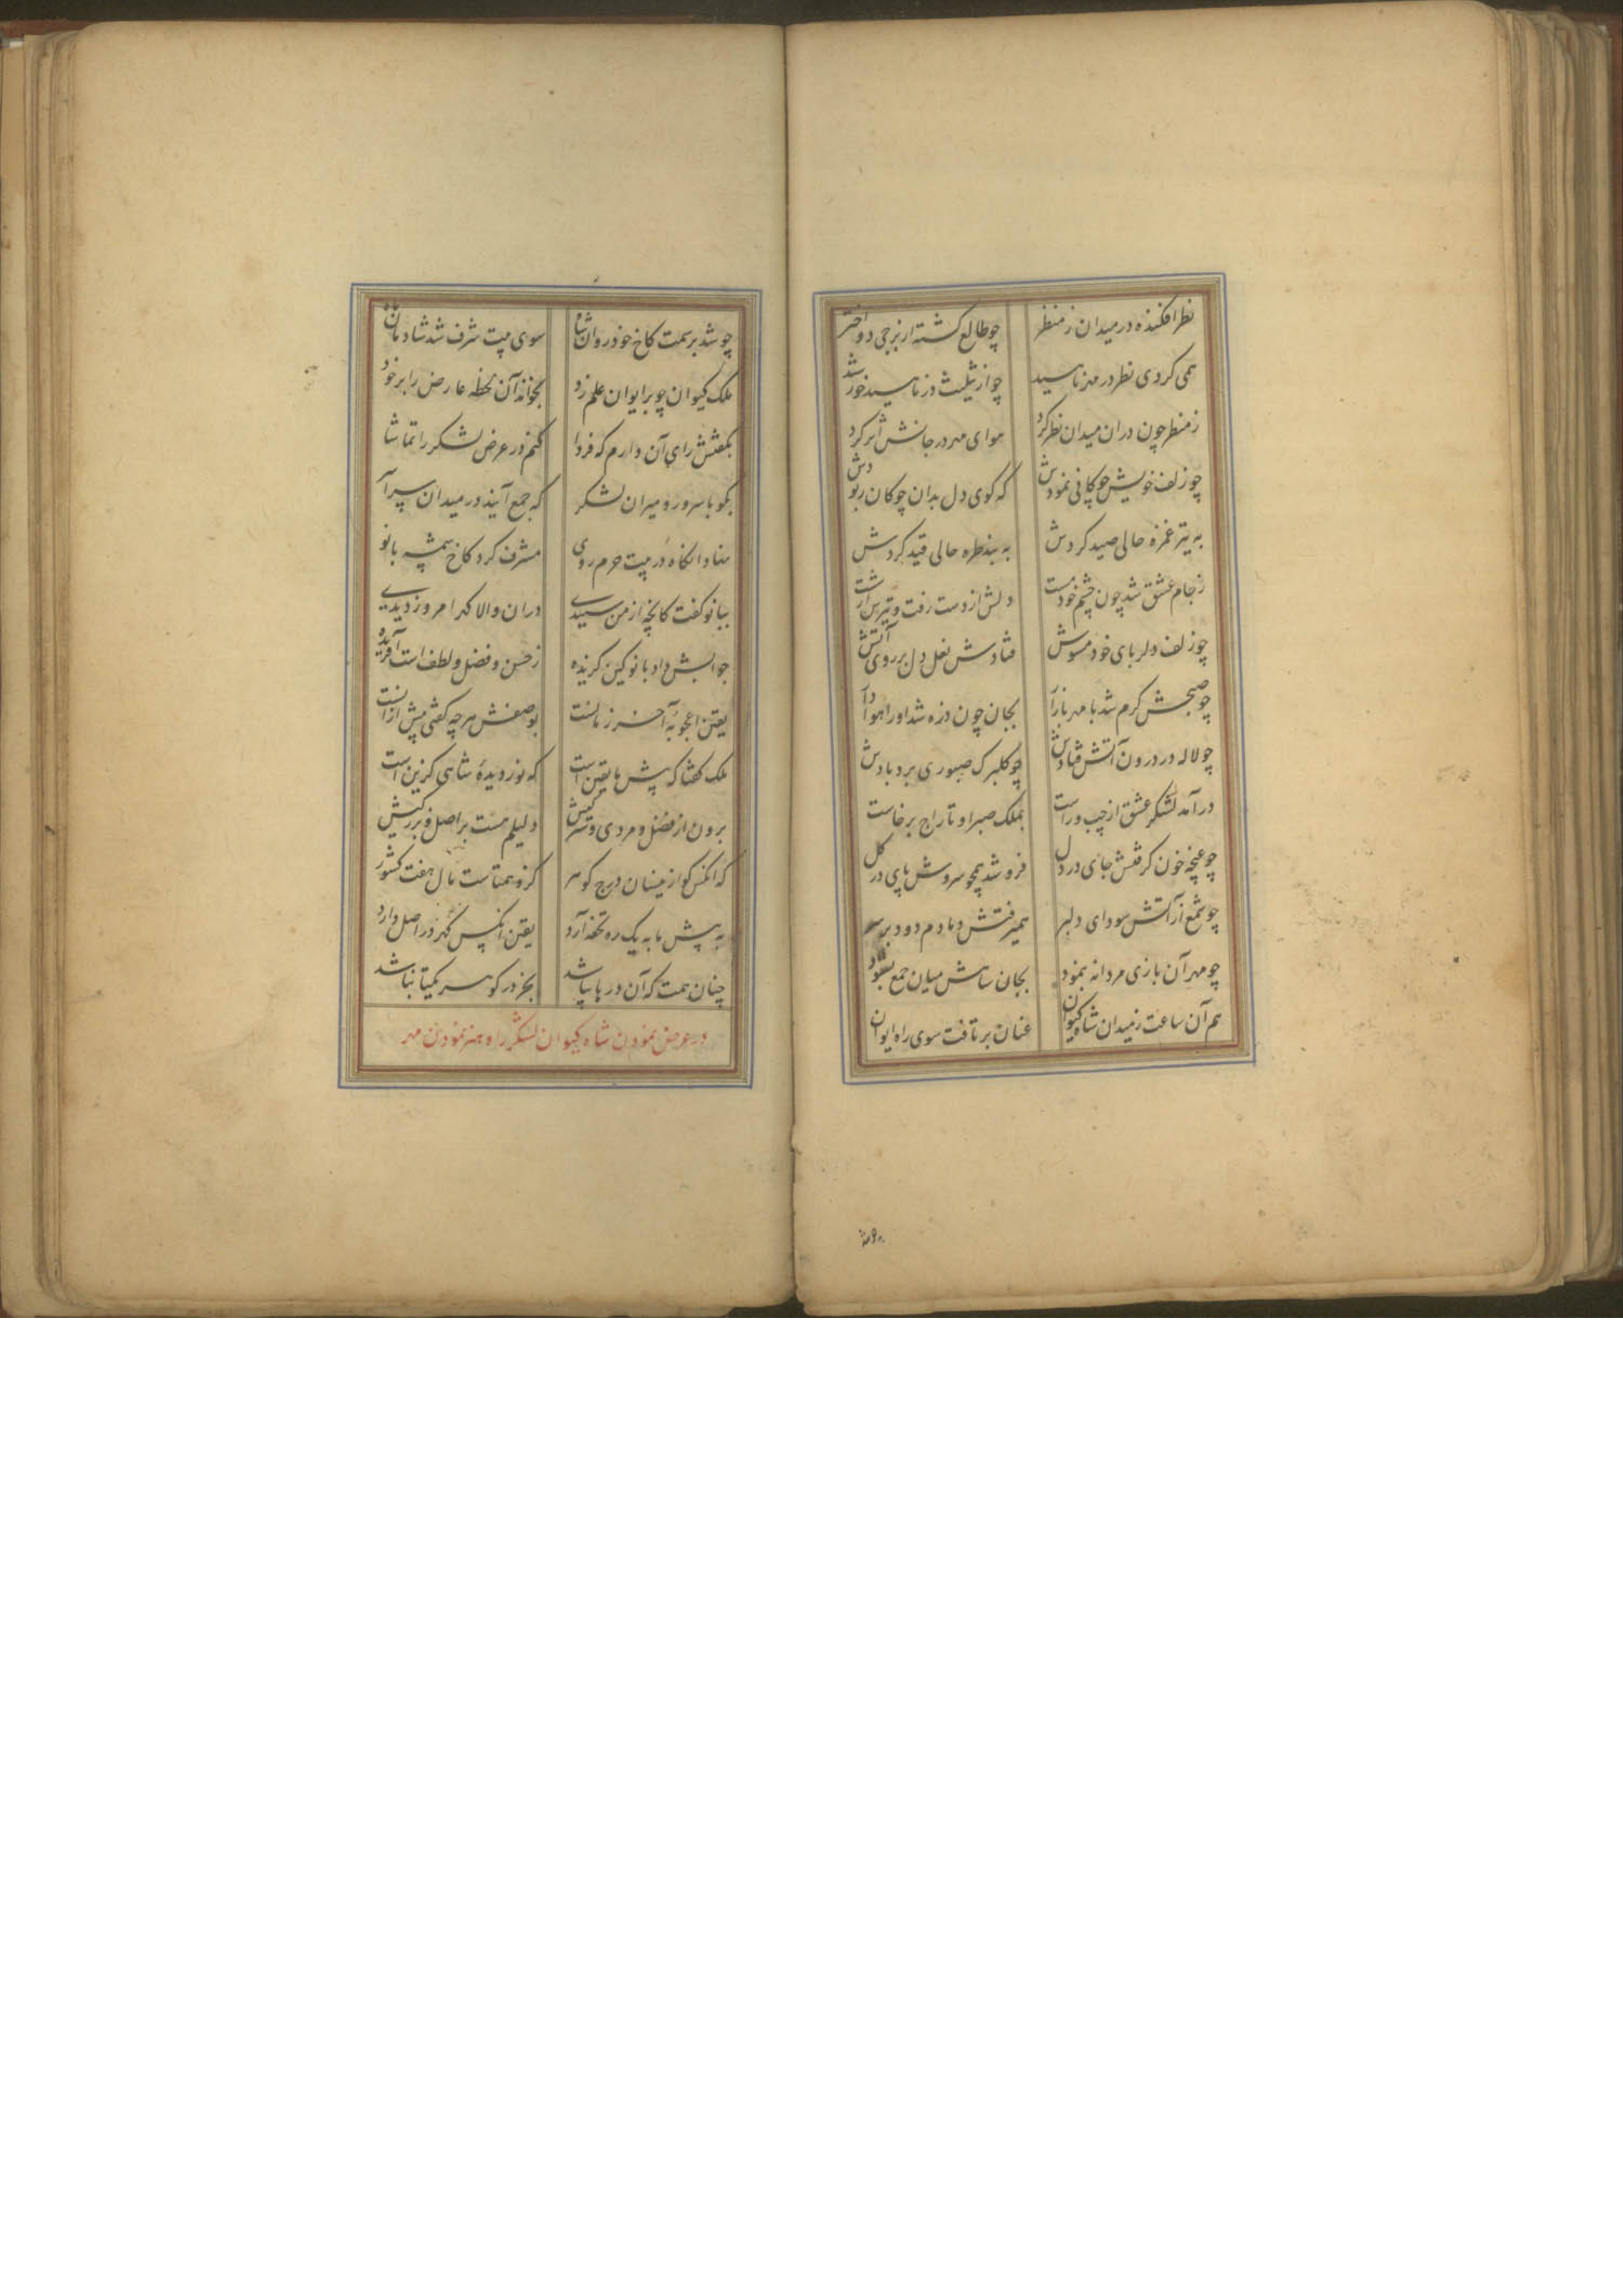 نظر افکنده در میدان ز منظر چو طالع گشته از برجی دو اختر
همی کردی نظر در مهر ناهید چو از تثلیث در ناهید خورشید
ز منظر چون در ان میدان نظر کرد هوای مهر در جانش اثر کرد
چو زلف خویش چوکانی نمودش که کوی دل بدان چوکان ربودش
به تیر غمزه حالی صید کردش به بند طره حالی قید کردش
ز جام عشق شد چون چشم خود مست دلش از دست رفت و تیر از شست
چو زلف دلربای خود مشوش فتادش نعل دل بر روی آتش
چو صبحش کرم شد با مهر بازار بجان چون ذره شد او را هوادار
چو لاله در درون آتش فتادش چو کلبرک صبوری برد بادش
در آمد لشکر عشق از چپ و راست بملک صبر او تاراج برخاست
چو غنچه خون کرفتش جای در دل فرو شد همچو سروش پای در کل
چو شمع از آتش سودای دلبر همیرفتش دمادم دود بر سر
چو مهر آن بازی مردانه بنمود بجان شاهش میان جمع بستود
هم آن ساعت ز میدان شاه کیوان عنان بر تافت سوی راه ایوان
چو شد بر سمت کاخ خود روان شاه سوی بیت شرف شد شادمان ماه
ملک کیوان چو بر ایوان علم زد بخواند آن لحظه عارض را بر خود
بگفتش رای آن دارم که فردا کنم در عرض لشکر را تماشا
بگو با سرور و میران لشکر که جمع آیند در میدان سراسر
نهاد انکاه در بیت حرم روی مشرف کرد کاخ بانو
ببانو گفت کانچه از من شنیدی در ان والا کهر امروز دیدی
جوابش داد بانو کین کزیده ز حسن و فضل و لطف است آفریده
یقین اعجوبه آخر زمانست بوصفش هر چه کفتی بیش از آنست
ملک گفتا که پیش ما یقین است که نور دیده شاهی کزین است
برون از فضل و مردی و دلیلم هست بر اصل و بزرگیش
که انکس کو از نیسان درج کوهر کزو همتاست مال هفت کشور
به پیش ما به یک ره تحفه آرد یقین انکس کهر در اصل دارد
چنان همت که آن دریا بباشد بجز در کوهر یکتا نباشد
در عرض نمودن شاه کیوان لشکر را و هنر نمودن مهر